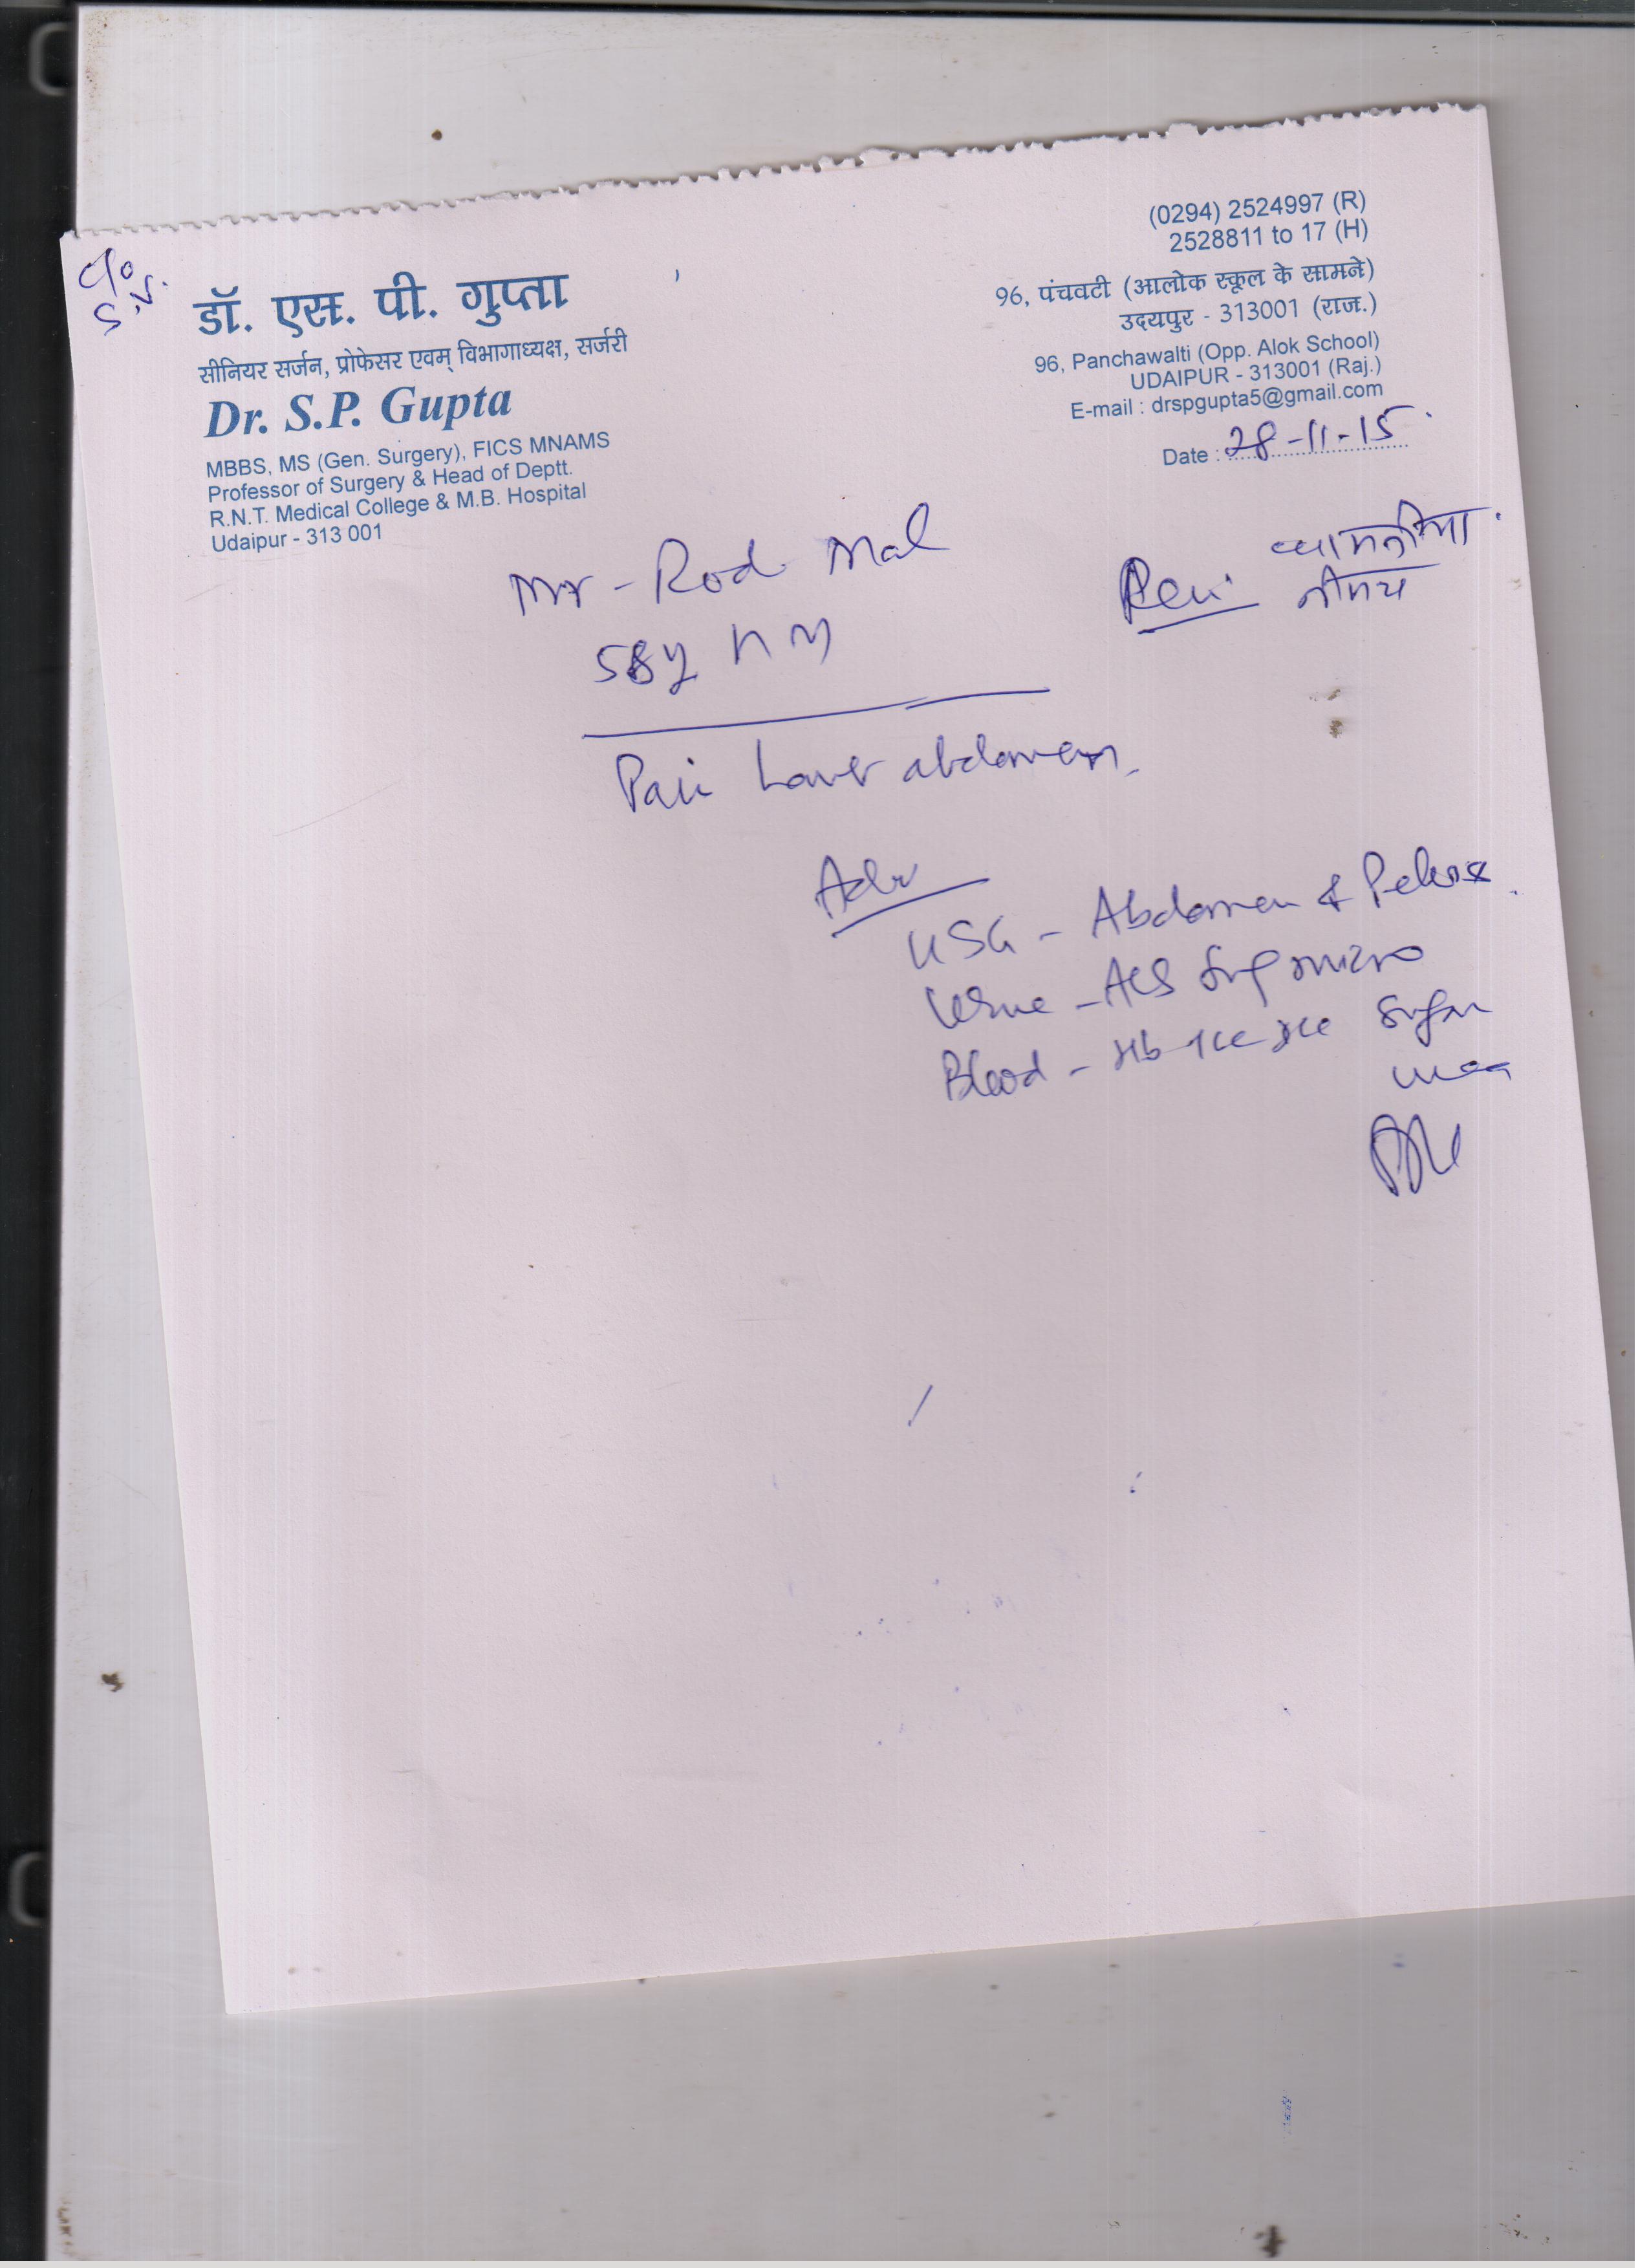 डॉ. एस. पी. गुप्ता
सीनियर सर्जन, प्रोफेसर एवम् विभागाध्यक्ष, सर्जरी
Dr. S.P. Gupta
MBBS, MS (Gen. Surgery), FICS MNAMS
Professor of Surgery & Head of Deptt.
R.N.T. Medical College & M.B. Hospital
Udaipur - 313 001
(0294) 2524997 (R)
2528811 to 17 (H)
96, पंचवटी (आलोक स्कूल के सामने)
उदयपुर - 313001 (राज.)
96, Panchawalti (Opp. Alok School)
UDAIPUR - 313001 (Raj.)
E-mail : drspgupta5@gmail.com
Date : 28-11-15
Mr - Rod Mal
Pain Lower abdomen.
Adv
USG - Abdomen & Pelvis
Urine - micro
Blood - Hb TLC DLC Sugar